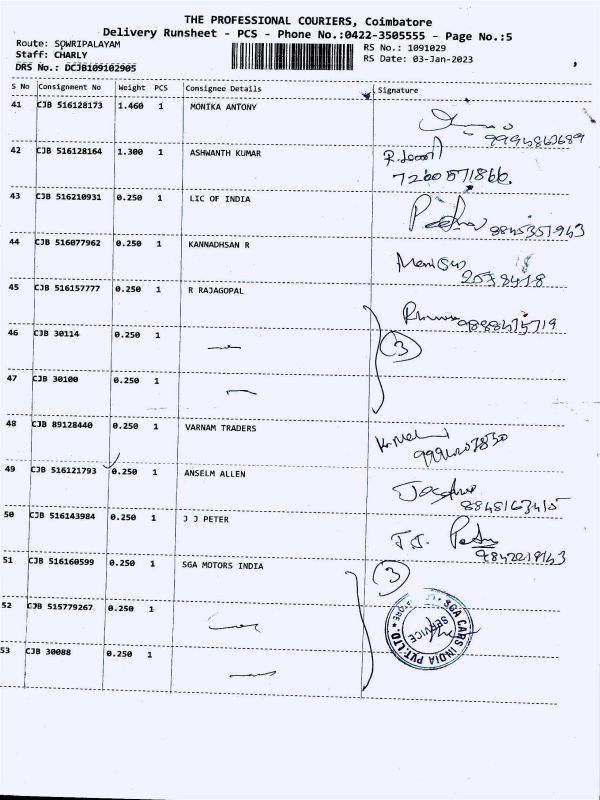 THE PROFESSIONAL COURIERS, Coimbatore
Delivery Runsheet - PCS - Phone No.:0422-3505555 - Page No.:5
Route: SOWRIPALAYAM
Staff: CHARLY
DRS No.: DCJB109102905
RS No.: 1091029
RS Date: 03-Jan-2023
S No Consignment No Weight PCS Consignee Details Signature
41 CJB 516128173 1.460 1 MONIKA ANTONY
42 CJB 516128164 1.300 1 ASHWANTH KUMAR
7260871866
43 CJB 516210931 0.250 1 LIC OF INDIA
8845351943
44 CJB 516077962 0.250 1 KANNADHSAN R
45 CJB 516157777 0.250 1 R RAJAGOPAL
46 CJB 30114 0.250 1
3
47 CJB 30100 0.250 1
48 CJB 89128440 0.250 1 VARNAM TRADERS
49 CJB 516121793 0.250 1 ANSELM ALLEN
50 CJB 516143984 0.250 1 J J PETER
51 CJB 516160599 0.250 1 SGA MOTORS INDIA
3
52 CJB 515779267 0.250 1
SGA CARS INDIA PVT. LTD.
SERVICE
53 CJB 30088 0.250 1